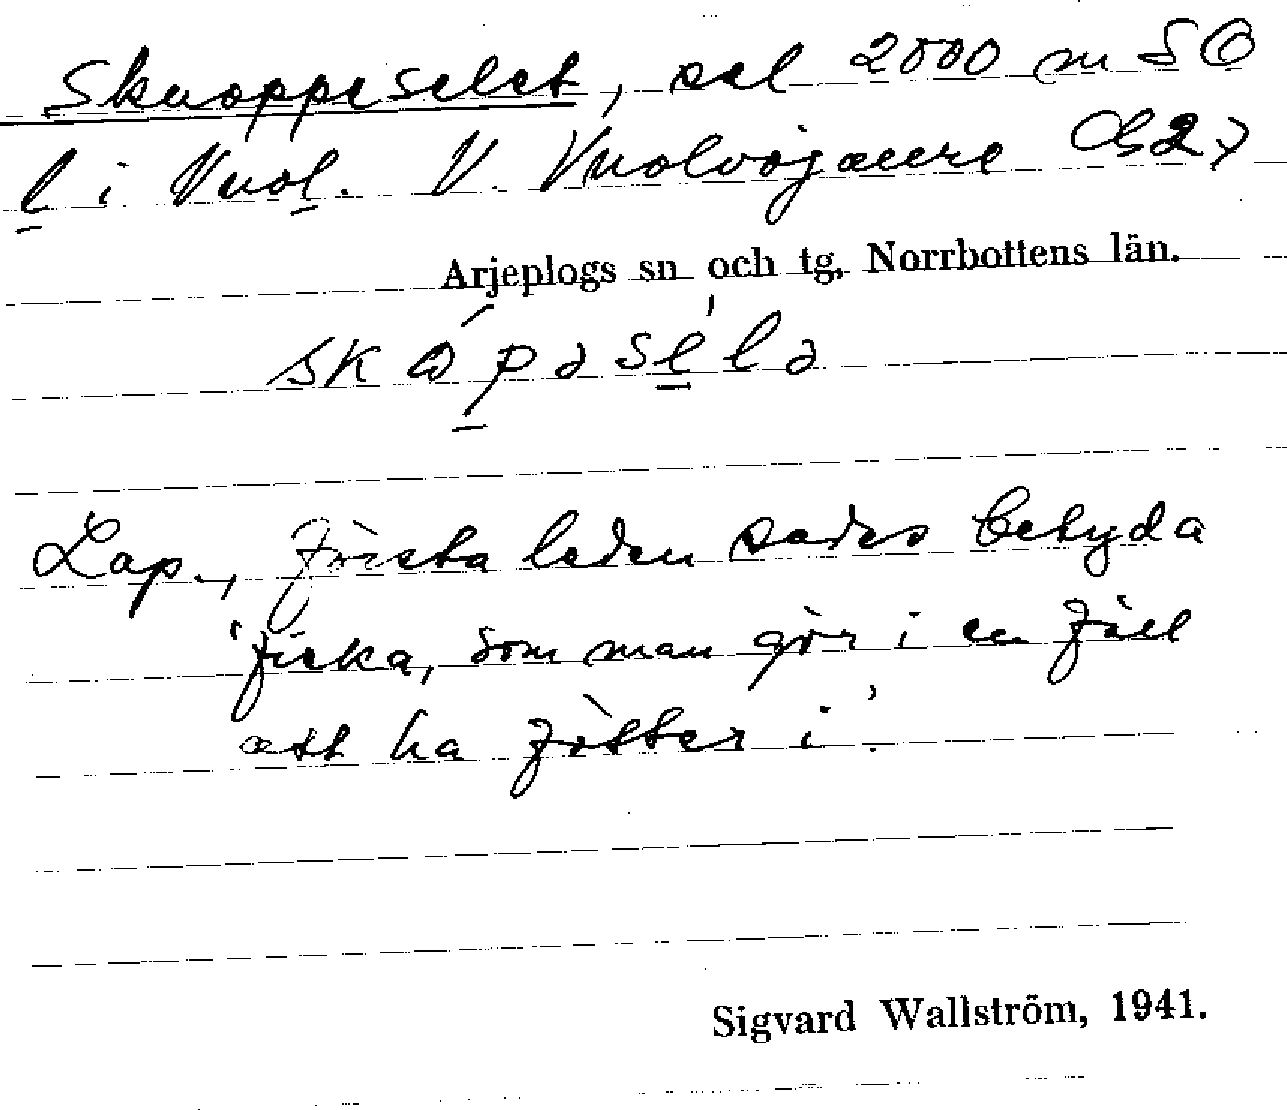 Skuoppeselet, sel 2000 m SO
l i Vuol. V. Vuolvojaure Gb 27
Arjeplogs sn och tg, Norrbottens län.
Lap., första leden sades betyda
'ficka, som man gör i en fäll
att ha fötter i'.
Sigvard Wallström, 1941.